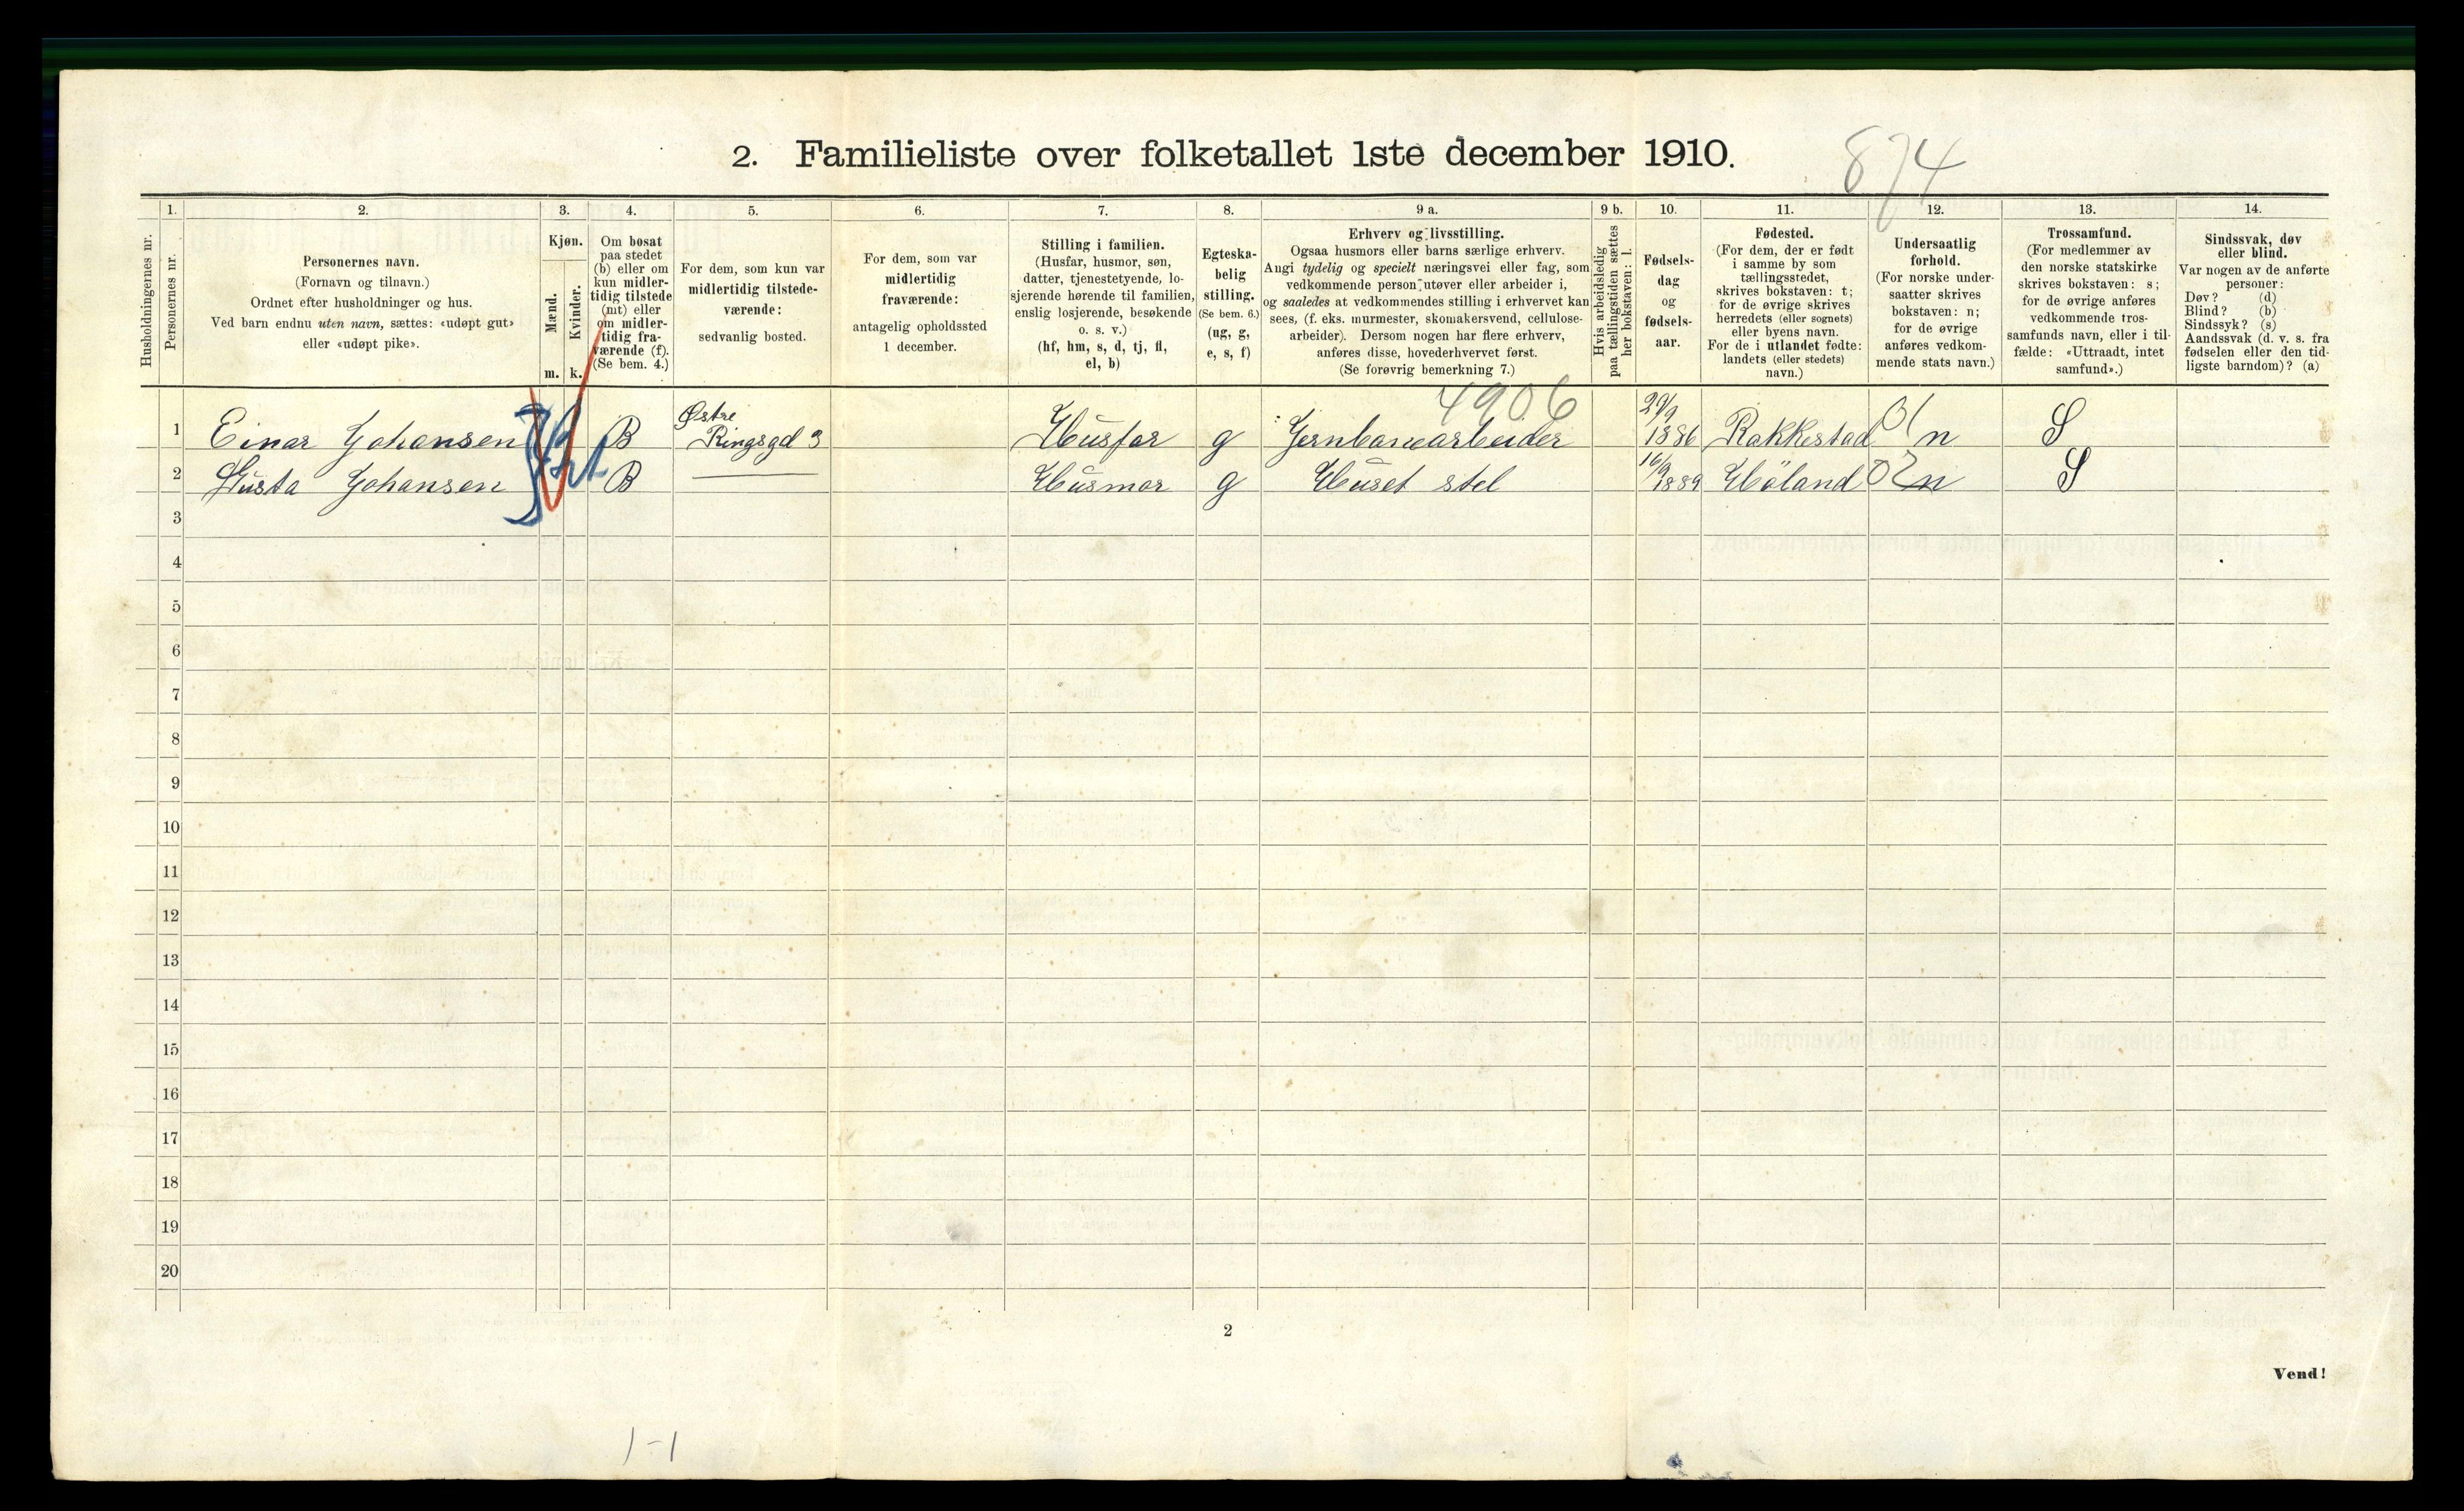 2. Familieliste over folketallet 1ste december 1910.
874
1. 2. 3. 4. 5. 6. 7. 8. 9 a. 9 b. 10. 11. 12. 13. 14.
Husholdningernes nr.
Personernes nr.
Personernes navn.
(Fornavn og tilnavn.)
Ordnet efter husholdninger og hus.
Ved barn endnu uten navn, sættes: «udøpt gut»
eller «udøpt pike».
Kjøn.
Mænd.
Kvinder.
m. k.
Om bosat
paa stedet
(b) eller om
kun midler-
tidig tilstede
(mt) eller
om midler-
tidig fra-
værende (f).
(Se bem. 4.)
For dem, som kun var
midlertidig tilstede-
værende:
sedvanlig bosted.
For dem, som var
midlertidig
fraværende:
antagelig opholdssted
1 december.
Stilling i familien.
(Husfar, husmor, søn,
datter, tjenestetyende, lo-
sjerende hørende til familien,
enslig losjerende, besøkende
o. s. v.)
(hf, hm, s, d, tj, fl,
el, b)
Egteska-
belig
stilling.
(Se bem. 6.)
(ug, g,
e, s, f)
Erhverv og livsstilling.
Ogsaa husmors eller barns særlige erhverv.
Angi tydelig og specielt næringsvei eller fag, som
vedkommende person utøver eller arbeider i,
og saaledes at vedkommendes stilling i erhvervet kan
sees, (f. eks. murmester, skomakersvend, cellulose-
arbeider). Dersom nogen har flere erhverv,
anføres disse, hovederhvervet først.
(Se forøvrig bemerkning 7.)
Hvis arbeidsledig
paa tællingstiden sættes
her bokstaven: l.
Fødsels-
dag
og
fødsels-
aar.
Fødested.
(For dem, der er født
i samme by som
tællingsstedet,
skrives bokstaven: t;
for de øvrige skrives
herredets (eller sognets)
eller byens navn.
For de i utlandet fødte:
landets (eller stedets)
navn.)
Undersaatlig
forhold.
(For norske under-
saatter skrives
bokstaven: n;
for de øvrige
anføres vedkom-
mende stats navn.)
Trossamfund.
(For medlemmer av
den norske statskirke
skrives bokstaven: s;
for de øvrige anføres
vedkommende tros-
samfunds navn, eller i til-
fælde: «Uttraadt, intet
samfund».)
Sindssvak, døv
eller blind.
Var nogen av de anførte
personer:
Døv? (d)
Blind? (b)
Sindssyk? (s)
Aandssvak (d. v. s. fra
fødselen eller den tid-
ligste barndom)? (a)
4906
1 Einar Johansen B Østre Ringsgd 3 Husfar g Jernbanearbeider 29/9 1886 Rakkestad 01 n S
2 Gusta Johansen B — Husmor g Huset stel 16/9 1889 Höland 02 n S
3
4
5
6
7
8
9
10
11
12
13
14
15
16
17
18
19
20
2
Vend!
1-1